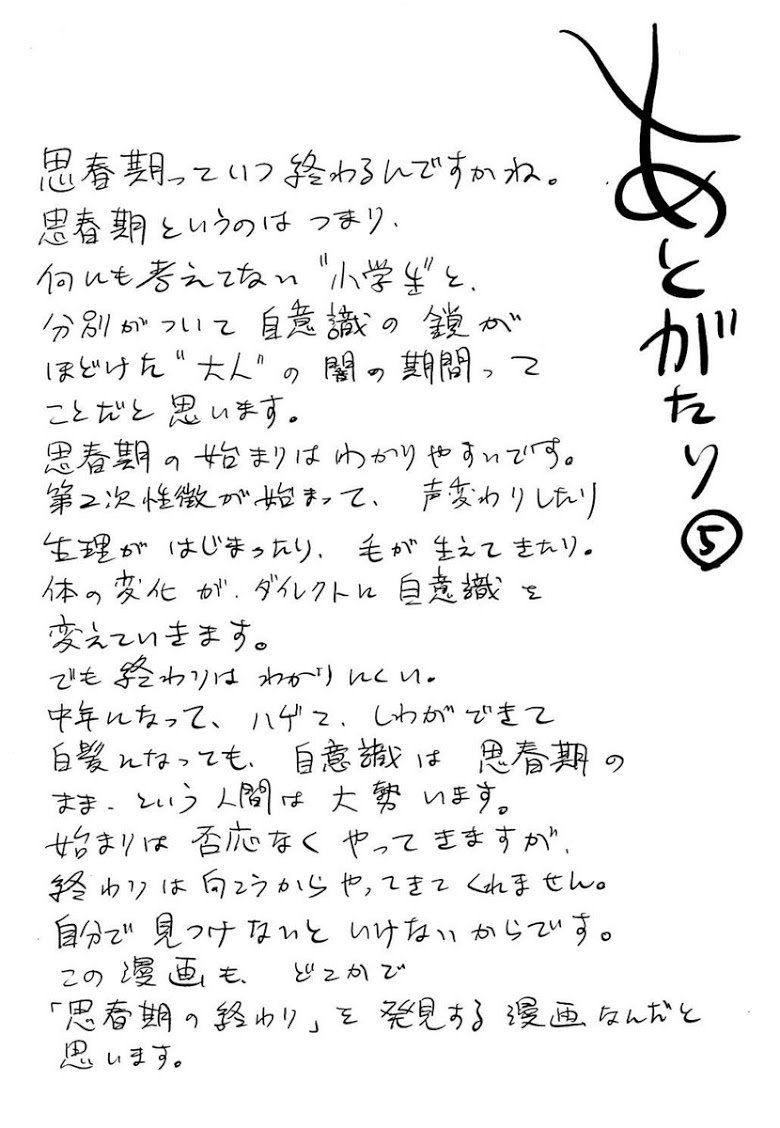 あとがたり⑤
思春期っていつ終わるんですかね。
思春期というのはつまり、
何にも考えてない"小学生"と、
分別がついて自意識の鎖が
ほどけた"大人"の闇の期間って
ことだと思います。
思春期の始まりはわかりやすいです。
第2次性徴が始まって、声変わりしたり
生理がはじまったり、毛が生えてきたり。
体の変化が、ダイレクトに自意識を
変えていきます。
でも終わりはわかりにくい。
中年になって、ハゲて、しわができて
白髪になっても、自意識は思春期の
まま、という人間は大勢います。
始まりは否応なくやってきますが、
終わりは向こうからやってきてくれません。
自分で見つけないといけないからです。
この漫画も、どこかで
「思春期の終わり」を発見する漫画なんだと
思います。